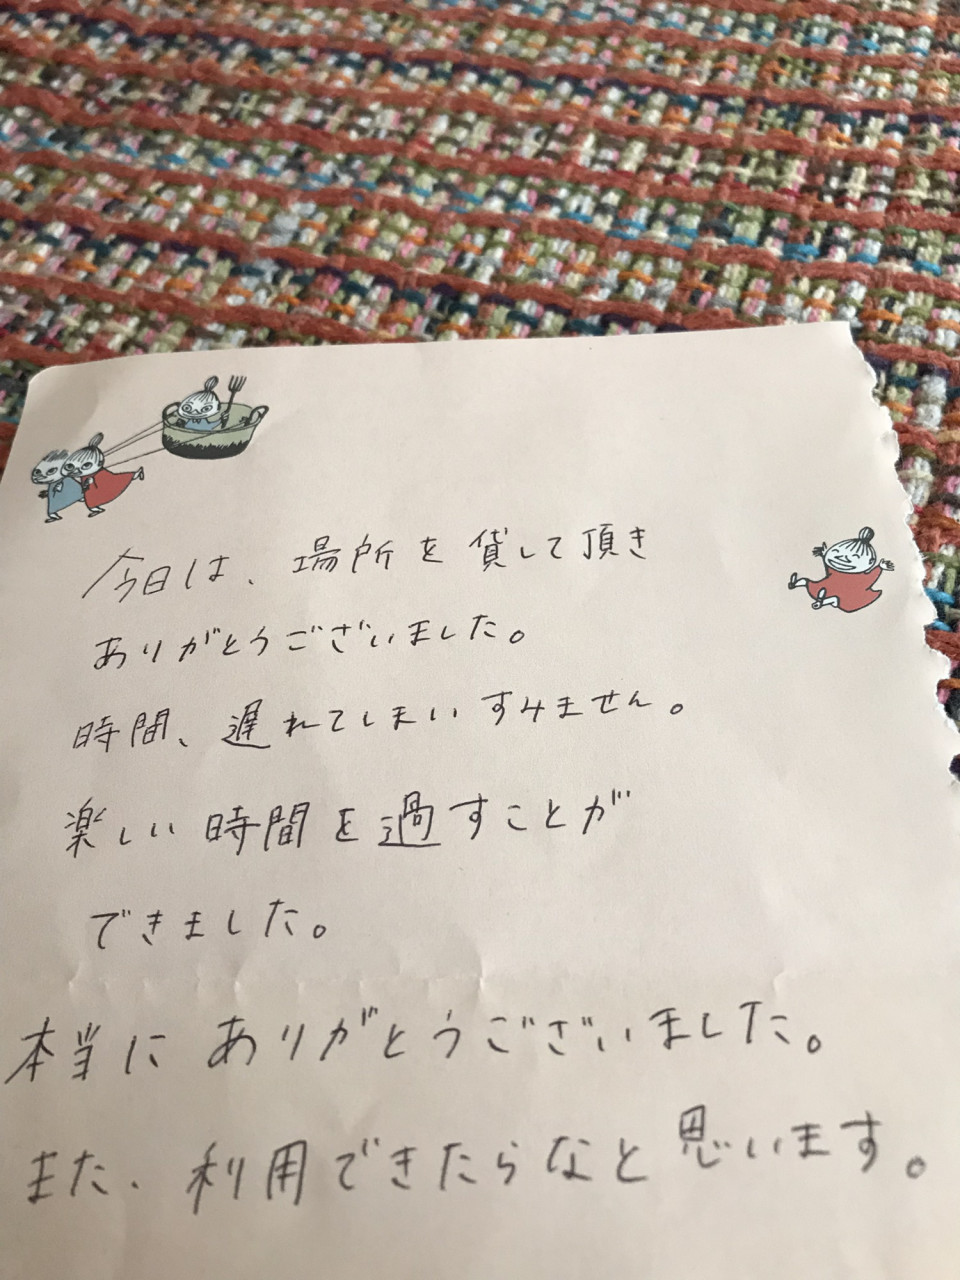 今日は、場所を貸して頂き
ありがとうございました。
時間、遅れてしまいすみません。
楽しい時間を過すことが
できました。
本当にありがとうございました。
また、利用できたらなと思います。